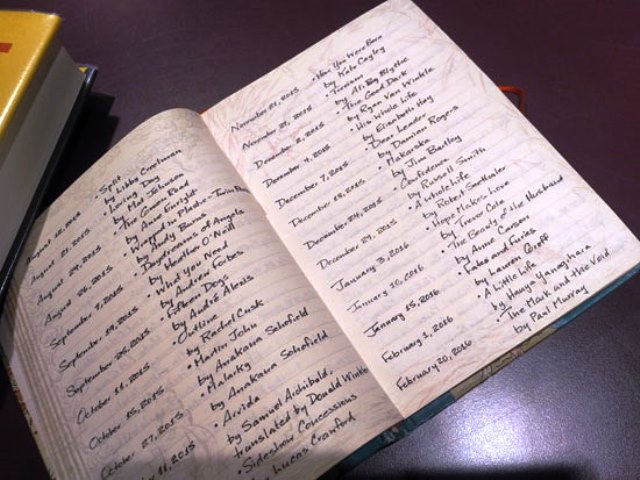 August 12, 2015 • Split
by Libby Creelman
August 21, 2015 • Loving Day
by Mat Johnson
August 24, 2015 • The Green Road
by Anne Enright
August 26, 2015
by Burns
September 7, 2015 • Daydreams of Angels
by Heather O'Neill
September 19, 2015 • What You Need
by Andrew Forbes
September 25, 2015 • Fifteen Dogs
by André Alexis
October 11, 2015 • Outline
by Rachel Cusk
October 15, 2015 • Martin John
by Anakana Schofield
October 27, 2015 • Malarky
by Anakana Schofield
11, 2015 • Arvida
by Samuel Archibald,
translated by Donald Winkle
• Sideshow Concessions
by Lucas Crawford
November 21, 2015 • How You Were Born
by Kate Cayley
November 27, 2015
by Ali Blythe
December 2, 2015 • The Good Dark
by Ryan Van Winkle
December 4, 2015 • His Whole Life
by Elizabeth Hay
December 7, 2015 • Dear Leader
by Damian Rogers
December 18, 2015 • Makarska
by Jim Bartley
December 24, 2015 • Confidence
by Russell Smith
December 29, 2015 • A Whole Life
by Robert Seethaler
January 3, 2016 • Hope Makes Love
by Trevor Cole
January 10, 2016 • The Beauty of the Husband
by Anne Carson
January 15, 2016 • Fates and Furies
by Lauren Groff
February 1, 2016 • A Little Life
by Hanya Yanagihara
February 20, 2016 • The Mark and the Void
by Paul Murray